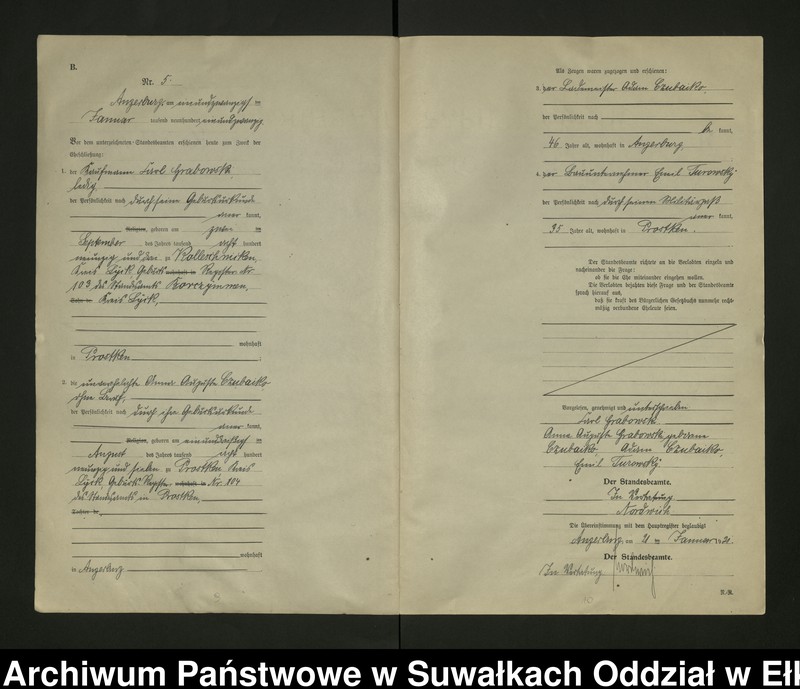 B.
Nr. 5.
Angerburg, am einundzwanzigsten
Januar tausend neunhundert einundzwanzig
Vor dem unterzeichneten Standesbeamten erschienen heute zum Zweck der
Eheschließung:
1. der Kaufmann Karl Grabowski
ledig,
der Persönlichkeit nach durch seine Geburtsurkunde
aner kannt,
Religion, geboren am
September des Jahres tausend acht hundert
neunzig und drei zu
Kreis Lyck, Geburts Register Nr.
103 des Standesamts
Kreis Lyck,
wohnhaft
in Prostken
2. die unverehelichte Anna Auguste Czubaiko
ohne Beruf,
der Persönlichkeit nach durch ihre Geburtsurkunde
aner kannt,
Religion, geboren am einunddreißigsten
August des Jahres tausend acht hundert
neunzig und sieben zu Prostken Kreis
Lyck, Geburts Register Nr. 104
des Standesamts in Prostken,
Tochter de
wohnhaft
in Angerburg
Als Zeugen waren zugezogen und erschienen:
3. der Lademeister Adam Czubaiko,
der Persönlichkeit nach
be kannt,
46 Jahre alt, wohnhaft in Angerburg
4. der Bauunternehmer Emil Turowski
der Persönlichkeit nach durch seinen Militärpaß
aner kannt,
35 Jahre alt, wohnhaft in Prostken.
Der Standesbeamte richtete an die Verlobten einzeln und
nacheinander die Frage:
ob sie die Ehe miteinander eingehen wollen.
Die Verlobten bejahten diese Frage und der Standesbeamte
sprach hierauf aus,
daß sie kraft des Bürgerlichen Gesetzbuchs nunmehr recht-
mäßig verbundene Eheleute seien.
Vorgelesen, genehmigt und unterschrieben
Karl Grabowski
Anna Auguste Grabowski geborene
Czubaiko, Adam Czubaiko,
Emil Turowski
Der Standesbeamte.
In Vertretung
Die Übereinstimmung mit dem Hauptregister beglaubigt
Angerburg, am 21 ten Januar 1921.
Der Standesbeamte.
In Vertretung
Archiwum Państwowe w Suwałkach Oddział w Ełk